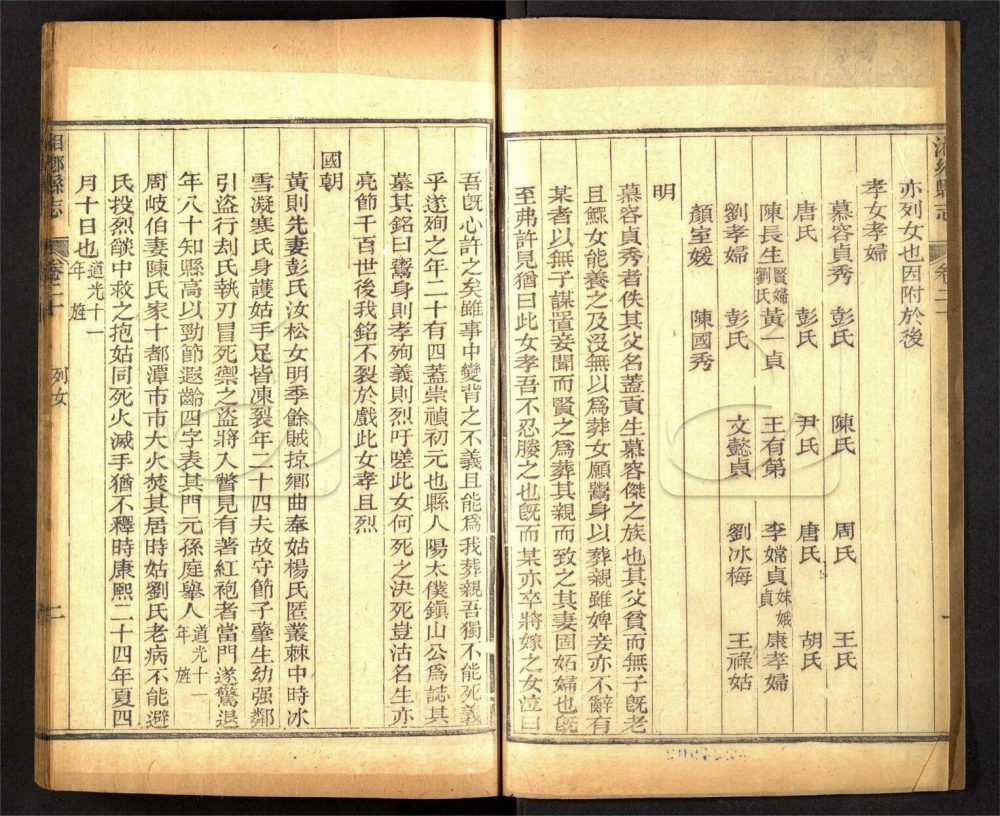 亦列女也因附於後
孝女孝婦
慕容貞秀 彭氏 陳氏 周氏 王氏
唐氏 彭氏 尹氏 唐氏 胡氏
陳長生 賢婦劉氏 黃一貞 王有第 李嫦貞 妹娥貞 康孝婦
劉孝婦 彭氏 文懿貞 劉冰梅 王祿姑
顏室媛 陳國秀
明
慕容貞秀者佚其父名蓋貢生慕容傑之族也其父貧而無子既老
且鰥女能養之及沒無以爲葬女願鬻身以葬親雖婢妾亦不辭有
某者以無子謀置妾聞而賢之爲葬其親而致之其妻固妬婦也既
至弗許見猶曰此女孝吾不忍媵之也既而某亦卒將嫁之女泣曰
湘鄉縣志 卷二十 一
吾既心許之矣雖事中變背之不義且能爲我葬親吾獨不能死義
乎遂殉之年二十有四蓋崇禎初元也縣人陽太僕鎮山公爲誌其
墓其銘曰鬻身則孝殉義則烈吁嗟此女何死之決死豈沽名生亦
亮節千百世後我銘不裂於戲此女孝且烈
國朝
黃則先妻彭氏汝松女明季餘賊掠鄉曲奉姑楊氏匿叢棘中時冰
雪凝寒氏身護姑手足皆凍裂年二十四夫故守節子肇生幼强鄰
引盜行刦氏執刃冒死禦之盜將入瞥見有著紅袍者當門遂驚退
年八十知縣高以勁節遐齡四字表其門元孫庭舉人道光十一年旌
周岐伯妻陳氏家十都潭市市大火焚其居時姑劉氏老病不能避
氏投烈燄中救之抱姑同死火滅手猶不釋時康熙二十四年夏四
月十日也道光十一年旌
湘鄉縣志 卷二十 列女 二